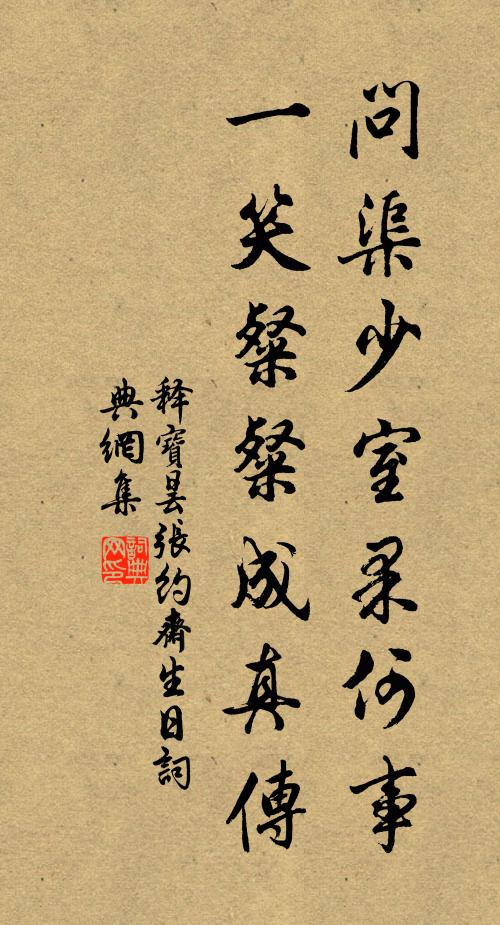 問渠少室果何事
一笑粲粲成真傳
釋寶曇張約齋生日詞
典網集
詞典網印